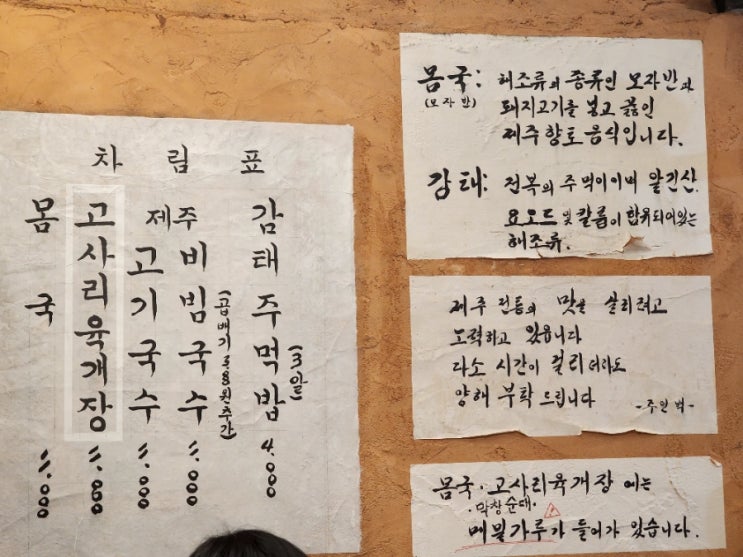 차 림 표
몸 국 11.000
고사리육개장 11.000
제주
고기국수 11.000
비빔국수 11.000
감태주먹밥 4.000
(3알)
몸국: 해조류의 종류인 모자반과
(모자반) 돼지고기를 넣고 끓인
제주향토음식입니다.
감태: 전복의 주먹이이며 알긴산.
요오드 및 칼륨이 함유되어있는
해조류.
제주 전통의 맛을 살리려고
노력하고 있읍니다
다소 시간이 걸리더라도
양해 부탁 드립니다
-주인백-
몸국·고사리육개장 에는
·막창순대·
메밀가루가 들어가 있습니다.